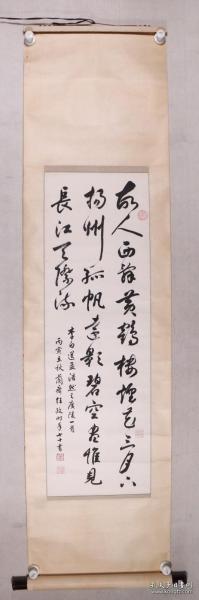 故人西辞黄鹤楼烟花三月下
扬州孤帆远影碧空尽惟见
長江天際流
李白送孟浩然之廣陵一首
丙寅立秋